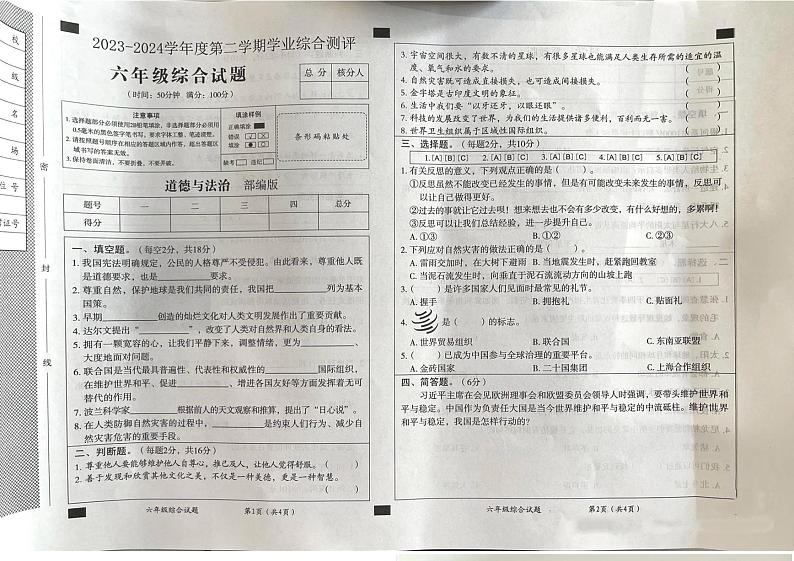 校
级
名
场
位号
考证号
密
封
线
2023-2024学年度第二学期学业综合测评
六年级综合试题
(时间：50分钟 满分：100分)
总 分 核分人
注意事项
1. 选择题部分必须使用2B铅笔填涂，非选择题部分必须用
0.5毫米的黑色签字笔书写，要求字体工整，笔迹清楚。
2. 请按照题号顺序在相应的答题区域内作答，超出答题区
域书写的答案无效。
3. 保持卷面清洁，不要折叠，不要弄破。
填涂样例
正确填涂
错误
填涂
缺考 违纪
条形码粘贴处
道德与法治 部编版
题号 一 二 三 四 总分
得分
一、填空题。（每空2分，共18分）
1. 我国宪法明确规定，公民的人格尊严不受侵犯。由此看来，尊重他人既
是道德要求，也是________要求。
2. 尊重自然，保护地球是我们共同的责任，我国把________列为基本
国策。
3. 早期________创造的灿烂文化对人类文明发展作出了重要贡献。
4. 达尔文提出“________”，改变了人类对自然界和人类自身的看法。
5. 拥有一颗宽容的心，让我们平静下来，调整情绪，更为________、
大度地面对问题。
6. 联合国是当代最具普遍性、代表性和权威性的________国际组织，
在维护世界和平、促进________、增进各国友好等方面发挥着无可
替代的作用。
7. 波兰科学家________根据前人的天文观察和推算，提出了“日心说”。
8. 在人类防御自然灾害的过程中，________是约束人们行为、减少自
然灾害危害的重要手段。
二、判断题。（每题2分，共16分）
1. 尊重他人要能够维护他人自尊心，推己及人，让他人觉得舒服。（ ）
2. 善于发现和欣赏其他文化之美，不仅是一种美德，更是一种智慧。
（ ）
六年级综合试题 第1页（共4页）
3. 宇宙空间很大，有数不清的星球，有很多星球也能满足人类生存所需的适宜的温
度、氧气和水的要求。（ ）
4. 自然灾害既可造成直接损失，也可造成间接损失。（ ）
5. 金字塔是古印度文明的象征。（ ）
6. 生活中我们要“以牙还牙，以眼还眼”。（ ）
7. 科技的发展改变了世界，为我们的生活提供诸多便利，百利而无一害。（ ）
8. 世界卫生组织属于区域性国际组织。（ ）
三、选择题。（每题2分，共10分）
1. [A] [B] [C] 2. [A] [B] [C] 3. [A] [B] [C] 4. [A] [B] [C] 5. [A] [B] [C]
1. 有关反思的意义，下列观点正确的是（ ）。
①反思虽然不能改变已经发生的事情，但是有可能改变未来发生的事情，反思可
以让自己做得更好。
②过去的事就让它过去呗！想来想去也不会有多少改变，有什么好想的，多累啊！
③反思可以让我们总结经验，进一步提升自己。
A. ①③ B. ①② C. ②③
2. 下列应对自然灾害的做法正确的是（ ）。
A. 雷雨交加时，在大树下避雨 B. 当地震发生时，赶紧跑回教室
C. 当泥石流发生时，向垂直于泥石流流动方向的山坡上跑
3. （ ）是许多国家人们见面时最常见的礼节。
A. 握手 B. 拥抱礼 C. 贴面礼
4. 是（ ）的标志。
A. 世界贸易组织 B. 联合国 C. 东南亚联盟
5. （ ）已成为中国参与全球治理的重要平台。
A. 金砖国家 B. 二十国集团 C. 上海合作组织
四、简答题。（6分）
习近平主席在会见欧洲理事会和欧盟委员会领导人时强调，要带头维护世界和
平与稳定。中国作为负责任大国是当今世界维护和平与稳定的中流砥柱。维护世界
和平与稳定，我国是怎样行动的？
六年级综合试题 第2页（共4页）